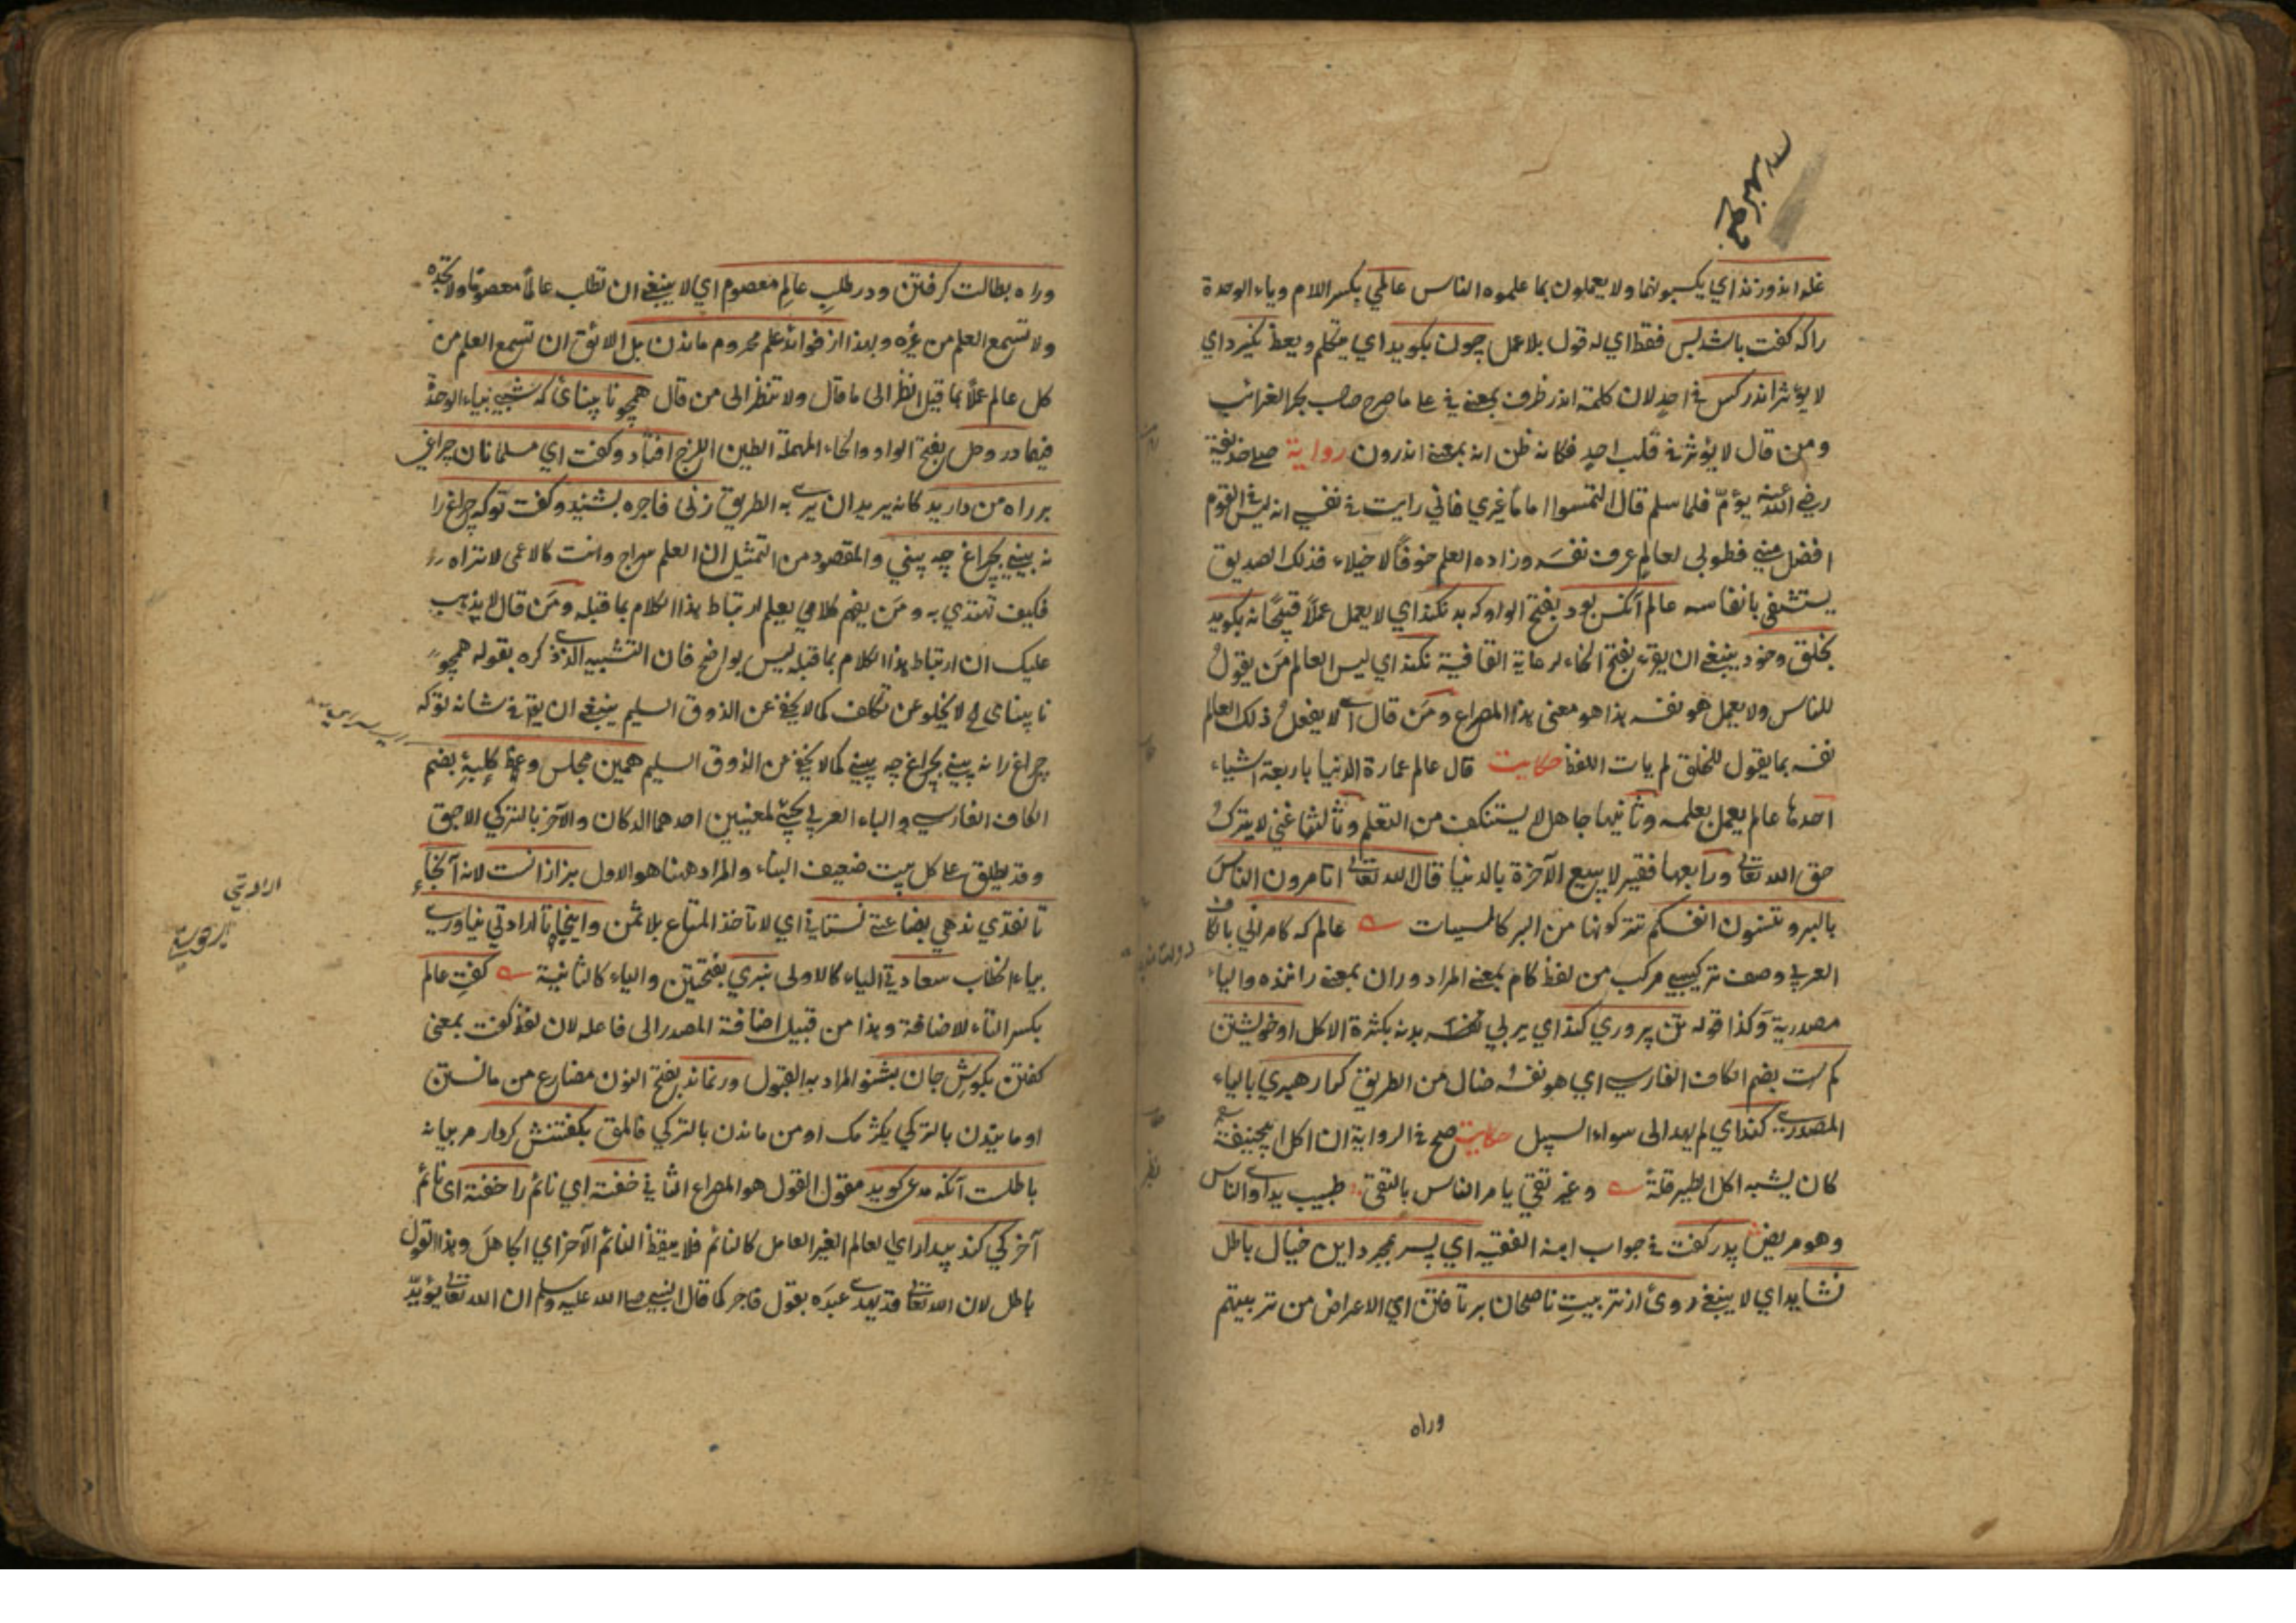 غله اندوزند اي يكسبونها ولا يعملون بما علموه الناس عالمي بكسر اللام وياء الوحدة
را كه كفت باشد بس فقط اي له قول بلا عمل چون بكويد اي يتكلم ويعظ نكيرد اي
لا يؤثر اندر كس في احد لان كلمة اندر ظرف بمعنى في على ما صرح صاحب بحر الغرائب
ومن قال لا يؤثر في قلب احد فكانه ظن انه بمعنى اندرون رواية صلى حذيفة
رضي الله عنه يؤمّ فلما سلم قال التمسوا اماما غيري فاني رايت في نفسي انه ليس في القوم
افضل مني فطوبى لعالم عرف نفسه وزاده العلم خوفًا لا خيلاء فذلك الصديق
يستشفى بانفاسه عالم آنكس بود بفتح الواو كه بد نكند اي لا يعمل عملًا قبيحًا نه بكويد
بخلق وخود ينبغي ان يقرء بفتح الخاء لرعاية القافية نكند اي ليس العالم مَن يقولُ
للناس ولا يعمل هو نفسه هذا هو معنى هذا المصراع ومَن قال اي لا يفعلُ ذلك العالم
نفسه بما يقول للخلق لم يات اللفظ حكايت قال عالم عمارة الدنيا باربعة اشياء
احدها عالم يعمل بعلمه وثانيها جاهل لا يستنكف من التعلم وثالثها غني لا يترك
حق الله تعالى ورابعها فقير لا يبيع الآخرة بالدنيا قال الله تعالى اتامرون الناسَ
بالبر وتنسون انفسكم تتركونها من البر كالمنسيات عالم كه كامراني بالكاف
العربي وصف تركيبي مركب من لفظ كام بمعنى المراد وران بمعنى راننده والياء
مصدرية وكذا قوله تن پروري كند اي يربي نفسه بدنه بكثرة الاكل او خويشتن
كم ست بضم الكاف الفارسي اي هو نفسُه ضال من الطريق كرا رهبري بالياء
المصدري كند اي لم يهد الى سواء السبيل حكايت صح في الرواية ان اكل ابي حنيفة
كان يشبه اكل الطير قلةً وغير تقي يامر الناس بالتقى طبيب يداوي الناس
وهو مريض پدر كفت في جواب ابنه الفقيه اي پسر بمجرد اين خيال باطل
نشايد اي لا ينبغي روئ از تربيتِ ناصحان برتافتن اي الاعراض من تربيتهم
وراه
وراه بطالت كرفتن ودر طلبِ عالمِ معصوم اي لا ينبغي ان تطلب عالمًا معصومًا ولا تجده
ولا تسمع العلم من غيره وبهذا از فوائد علم محروم ماندن بل الائق ان تسمع العلم من
كل عالم عملًا بما قيل انظر الى ما قال ولا تنظر الى من قال همچو نابينائ كه شبي بياء الوحدة
فيهما در وحل بفتح الواو والحاء المهملة الطين اللزج افتاد وكفت اي مسلمانان چراغي
بر راه من داريد كانه يريد ان يرى به الطريق زنى فاجره بشنيد وكفت تو كه چراغ را
نه بيني بچراغ چه بيني والمقصود من التمثيل ان العلم سراج وانت كالاعمى لا تراه
فكيف تهتدي به ومَن يفهم كلامي يعلم ارتباط هذا الكلام بما قبله ومَن قال لا يذهب
عليك ان ارتباط هذا الكلام بما قبله ليس بواضح فان التشبيه الذي ذكره بقوله همچو
نابيناي الخ لا يخلو عن تكلف كما لا يخفى عن الذوق السليم ينبغي ان يقرء في شانه تو كه
چراغ را نه بيني بچراغ چه بيني كما لا يخفى من الذوق السليم همين مجلس وعظ كلبۀ بضم
الكاف الفارسي والباء العربي يجيء لمعنيين احدهما الدكان والآخر بالتركي الاجق
وقد يطلق على كل بيت ضعيف البناء والمراد ههنا هو الاول بزازانست لانه آنجا
تا نقدي ندهي بضاعتي نستاني اي لا تاخذ المتاع بلا ثمن واينجا تا ارادتي نياوري
بياء الخطاب سعادتي الياء كالاولى نبري بفتحتين والياء كالثانية كفتِ عالم
بكسر التاء للاضافة وهذا من قبيل اضافة المصدر الى فاعله لان لفظ كفت بمعنى
كفتن بكوشِ جان بشنو المراد به القبول ور نماند بفتح النون مضارع من مانستن
او مانيدن بالتركي بكزمك او من ماندن بالتركي قالمق بكفتنش كردار مر بيانه
باطلست آنكه مدعى كويد مقول القول هو المصراع الثاني خفته اي نائم را خفته اى نائم
آخر كي كند بيدار اي العالم الغير العامل كالنائم فلا يوقظ النائم الآخر اي الجاهل وهذا القول
باطل لان الله تعالى قد يهدي عبدَه بقول فاجر كما قال النبي صلى الله عليه وسلم ان الله تعالى يؤيّد